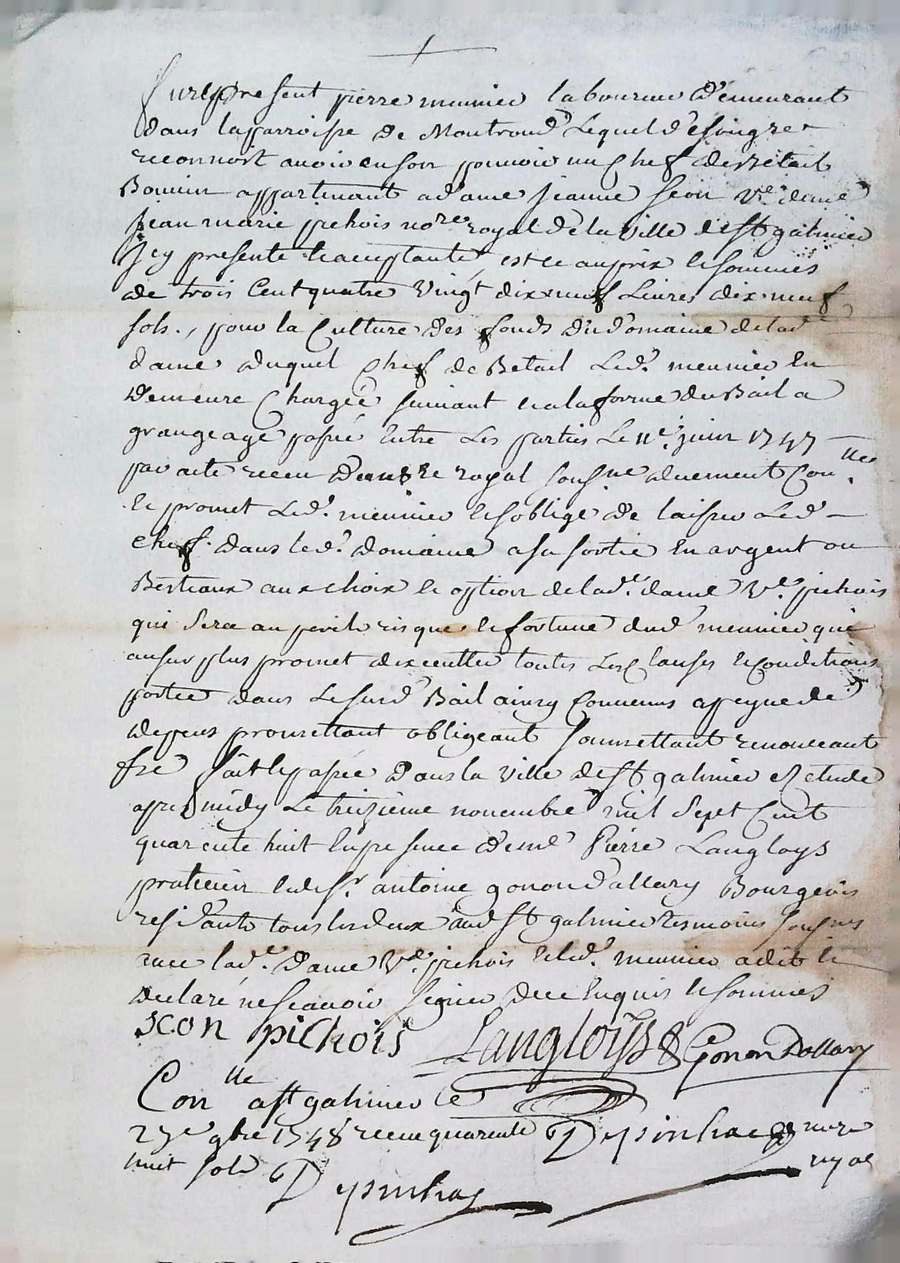 fut present pierre meunier laboureur demeurant
dans la parroisse de Montrond Lequel de son gre
reconnoit avoir en son pouvoir un chef de Betail
Bouvin appartenant a dame jeanne seon Ve. de me
jean marie pichois nore. royal de la ville de st galmier
icy presente & acceptante, est ce au prix & sommes
de trois Cent quatre vingt dix neuf Livres dix neuf
sols, pour la Culture des fonds du domaine de lad.
dame duquel chef de Betail Led. meunier En
demeure Chargée suivant & a la forme du Bail a
grangeage passée Entre Les parties Le 11e. juin 1747
par acte receu du nre royal sousigne duement Con.lle
& promet Led. meunier & s'oblige de laisser Led
chef dans led. domaine a sa sortie En argent ou
Bestiaux aux choix & option de lad. dame Ve. pichois
qui sera au peril risque & fortune dud meunier qui
au surplus promet d'executter toutes Les Clauses & Conditions
portée dans Le susd Bail ainsy Convenus a peyne de
depens promettant obligeant soumettant renonceant
fre fait & passée dans la ville de st galmier & etude
apres midy Le treizieme novembre mil sept Cent
quarente huit En presence de me Pierre Langloys
praticien & de sr antoine gonon d'allary Bourgeois
residants tous les deux aud st galmier temoins sousignes
avec lad. dame Ve. pichois & led. meunier a dit &
declaré ne scavoir signer de ce Enquis & sommés
seon pichois Langloys Gonon Dallary
Con.lle a st galmier le
27e 9bre 1748 receu quarente
huit sols
Depinhac nore
royal
Depinhac